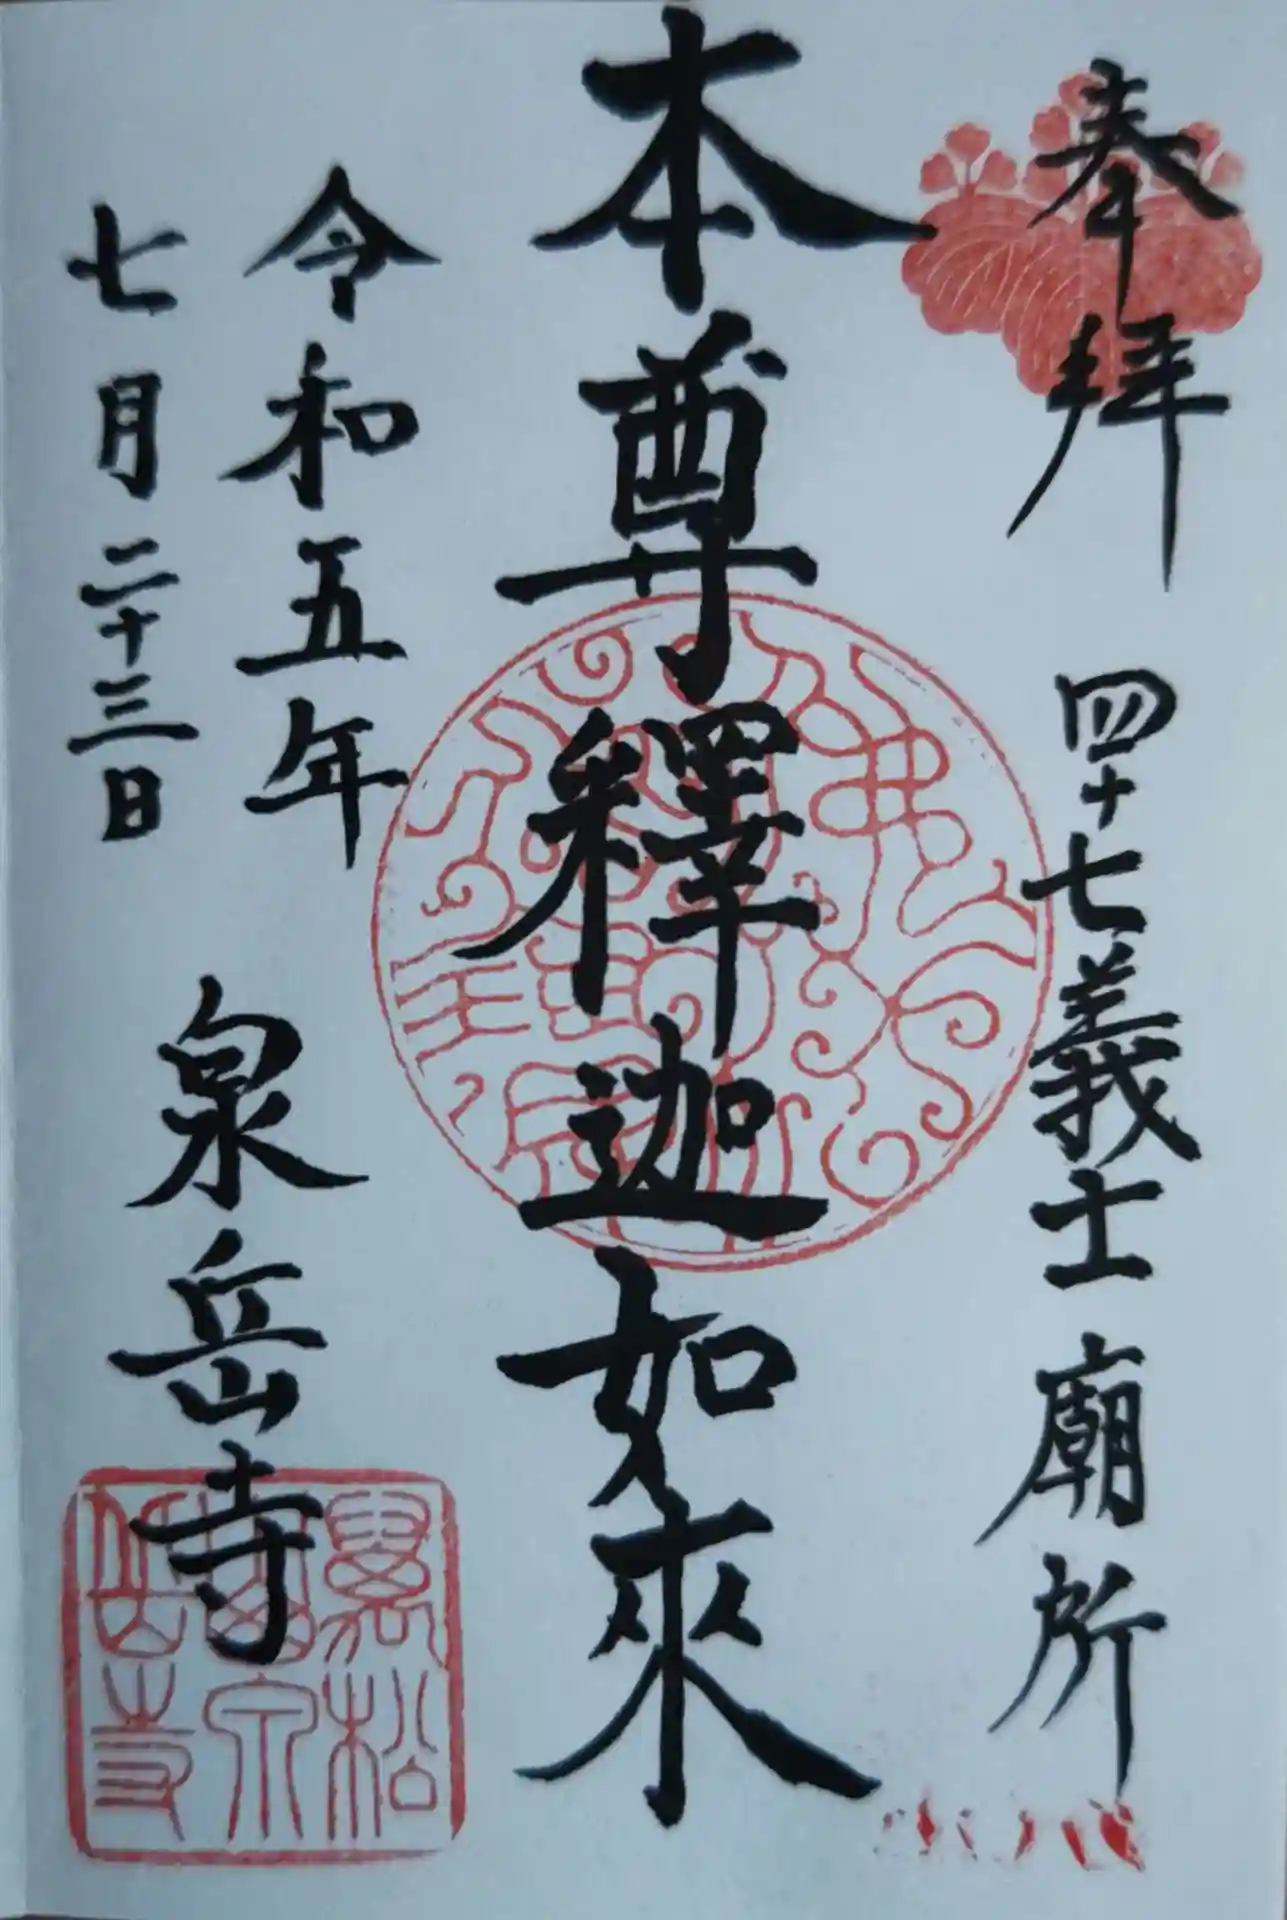 奉拝
四十七義士廟所
本尊釋迦如來
令和五年
七月二十三日
泉岳寺
萬松
岳寺